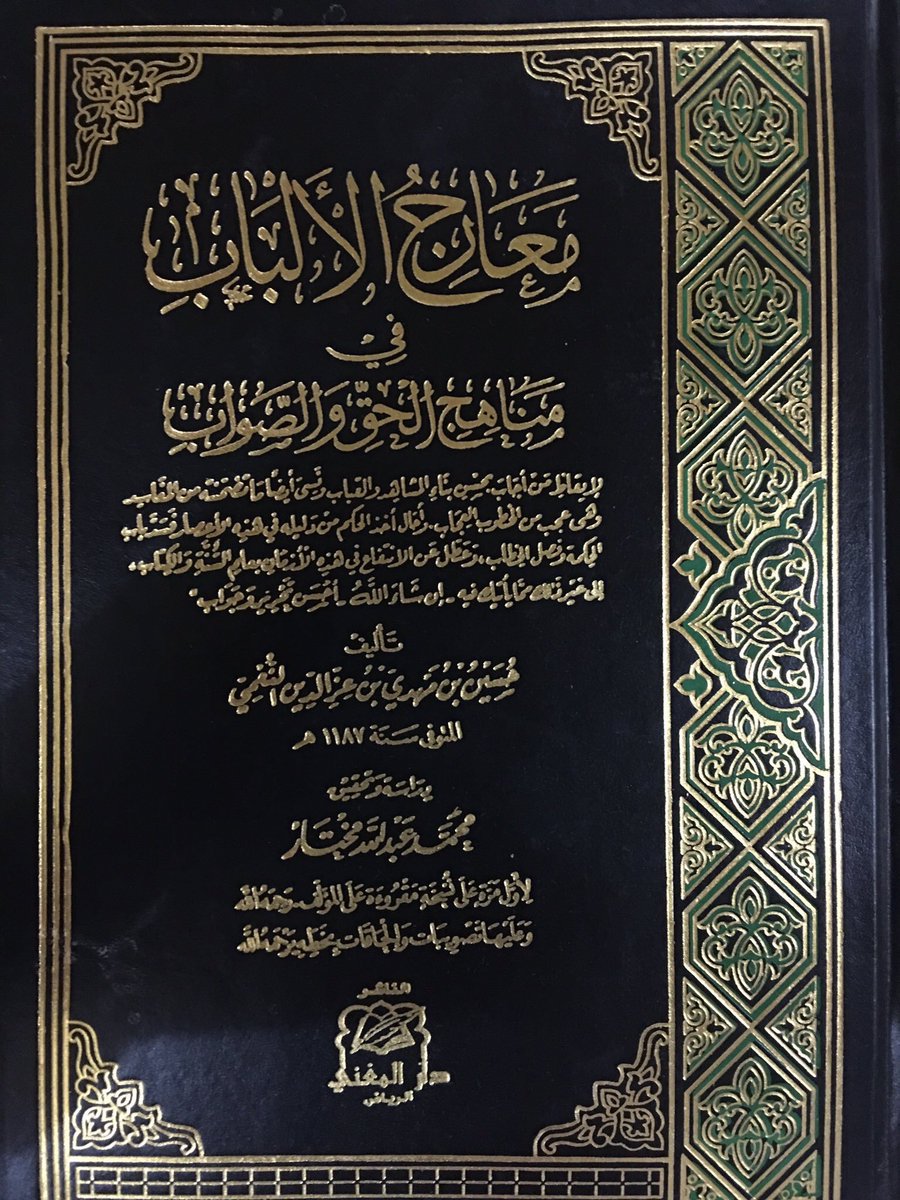 مَعَارِجُ الأَلْبَابِ
فِي
مَنَاهِجِ الْحَقِّ وَالصَّوَابِ
لإيقاظ من أجاب بحسن بناء المشاهد والقباب ونسي أيضاً ما تضمنته من
وهي عجب من الخطوب العجاب. وقال أخذ الحكم من دليله في هذه الأعصار
الحكمة وفصل الخطاب، وعطل عن الانتفاع في هذه الأزمان بعلم السُّنَّة وَالكِتاب،
إلى غير ذلك مما يأتيك فيه - إن شاء اللَّهُ - أحسن تحرير وجواب"
تَأليف
حُسَيْن بْن مَهْدِي بْن عِزّ الدِّين النُّعْمِيّ
المتوفى سَنَة ١١٨٧ هـ
دِرَاسَة وَتحقيق
محمّد عَبْد اللّه مختَار
لأوّل مَرَّة عَلَى نُسْخَة مَقْرُوءَة عَلَى المؤلّف رَحمَهُ الله
وَعَلَيهَا تَصْويبات وَإلحَاقات بِخَطِّهِ رَحْمَهُ اللَّهُ
الناشر
دار المغني
الرياض